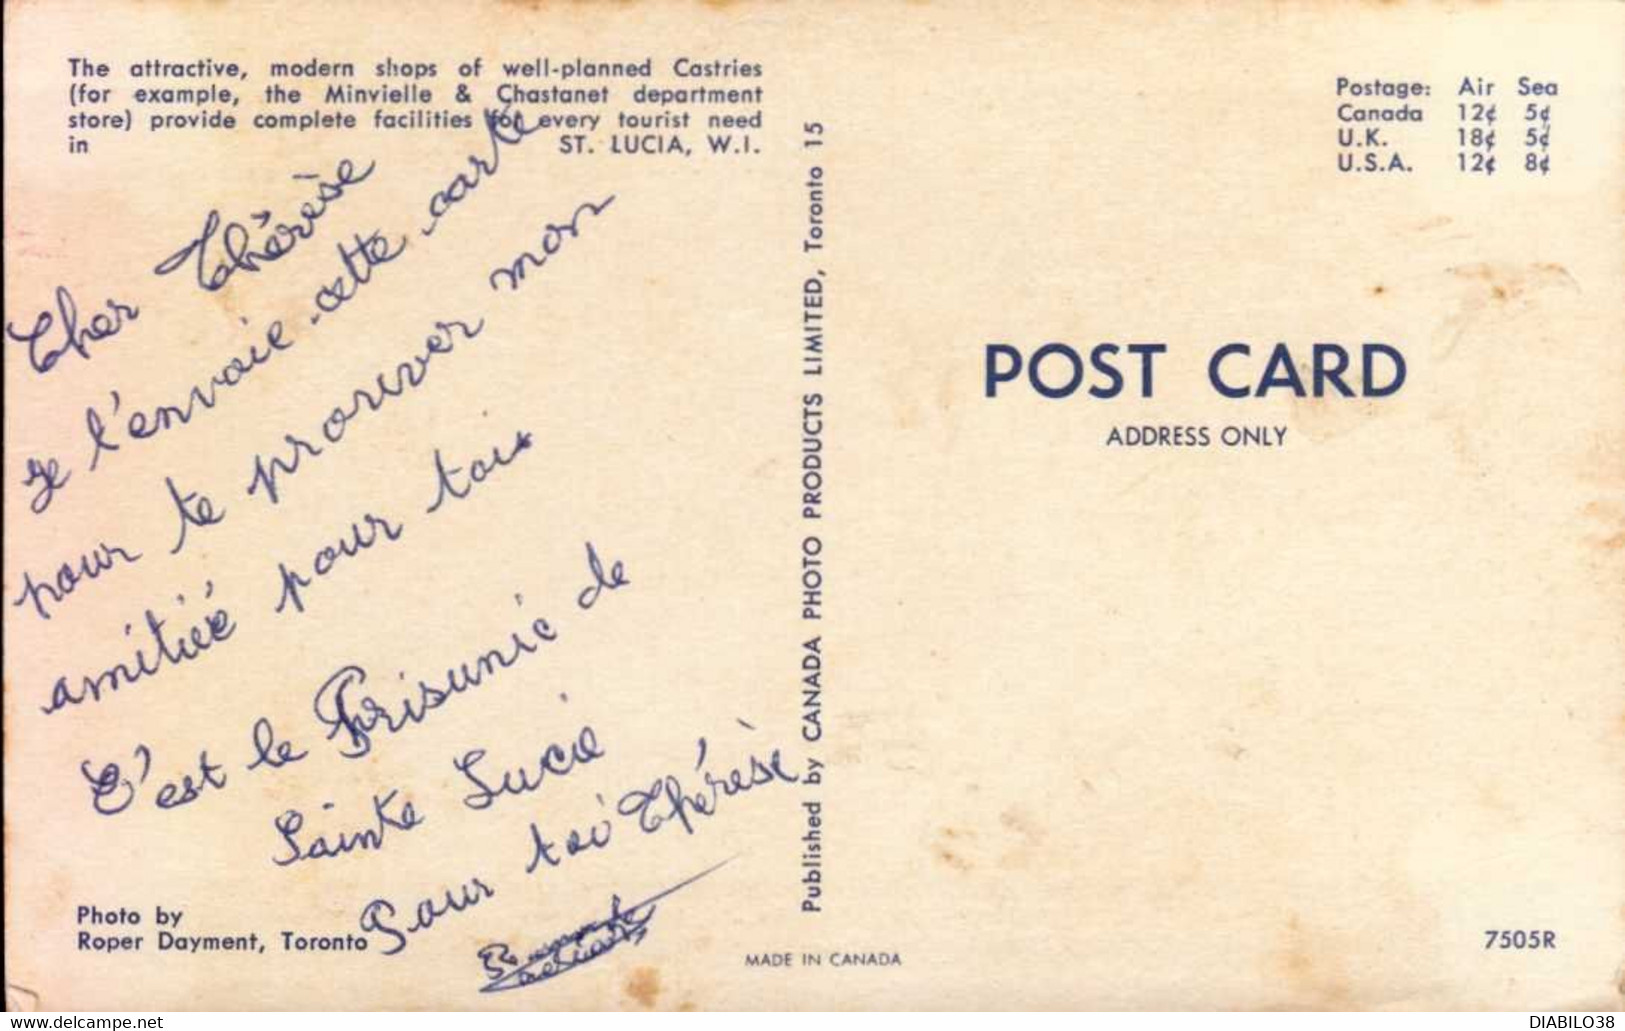 The attractive, modern shops of well-planned Castries
(for example, the Minvielle & Chastanet department
store) provide complete facilities for every tourist need
in ST. LUCIA, W.I.
Cher Thérèse
je t'envoie cette carte
pour te prouver mon
amitiée pour toi
C'est le Prisunic de
Sainte Lucie
Pour toi Thérèse
Photo by
Roper Dayment, Toronto
Published by CANADA PHOTO PRODUCTS LIMITED, Toronto 15
MADE IN CANADA
Postage: Air Sea
Canada 12¢ 5¢
U.K. 18¢ 5¢
U.S.A. 12¢ 8¢
POST CARD
ADDRESS ONLY
7505R
DIABILO38